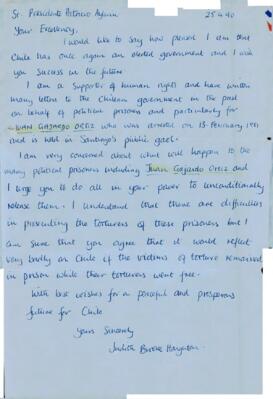 Sr. Presidente Patricio Aylwin 25.4.90
Your Excellency,
I would like to say how pleased I am that
Chile has once again an elected government and I wish
you success in the future
I am a supporter of human rights and have written
many letters to the Chilean government in the past
on behalf of political prisoners and particularly for
JUAN GAJARDO ORTIZ who was arrested on 15 February
and is held in Santiago's public gaol.
I am very concerned about what will happen to the
many political prisoners including Juan Gajardo Ortiz and
I urge you to do all in your power to unconditionally
release them. I understand that there are difficulties
in prosecuting the torturers of these prisoners but I
am sure that you agree that it would reflect
very badly on Chile if the victims of torture remained
in prison while their torturers went free.
With best wishes for a peaceful and prosperous
future for Chile
Yours Sincerely
Judith